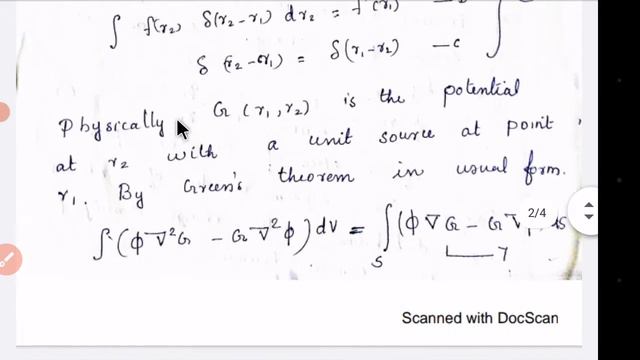 ∫ f(r₂) δ(r₂-r₁) dr₂ = f(r₁)
δ (r₂-r₁) = δ(r₁-r₂) — c
Physically G (r₁, r₂) is the potential
at r₂ with a unit source at point
r₁. By Green's theorem in usual form.
∫(ϕ∇²G - G∇²ϕ)dv = ∫(ϕ∇G - G∇
S
7
2/4
Scanned with DocScan